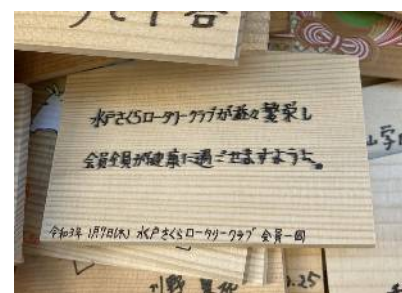 水戸さくらロータリークラブが益々繁栄し
会員全員が健康に過ごせますように。
令和3年 1月7日(木) 水戸さくらロータリークラブ 会員一同
.25